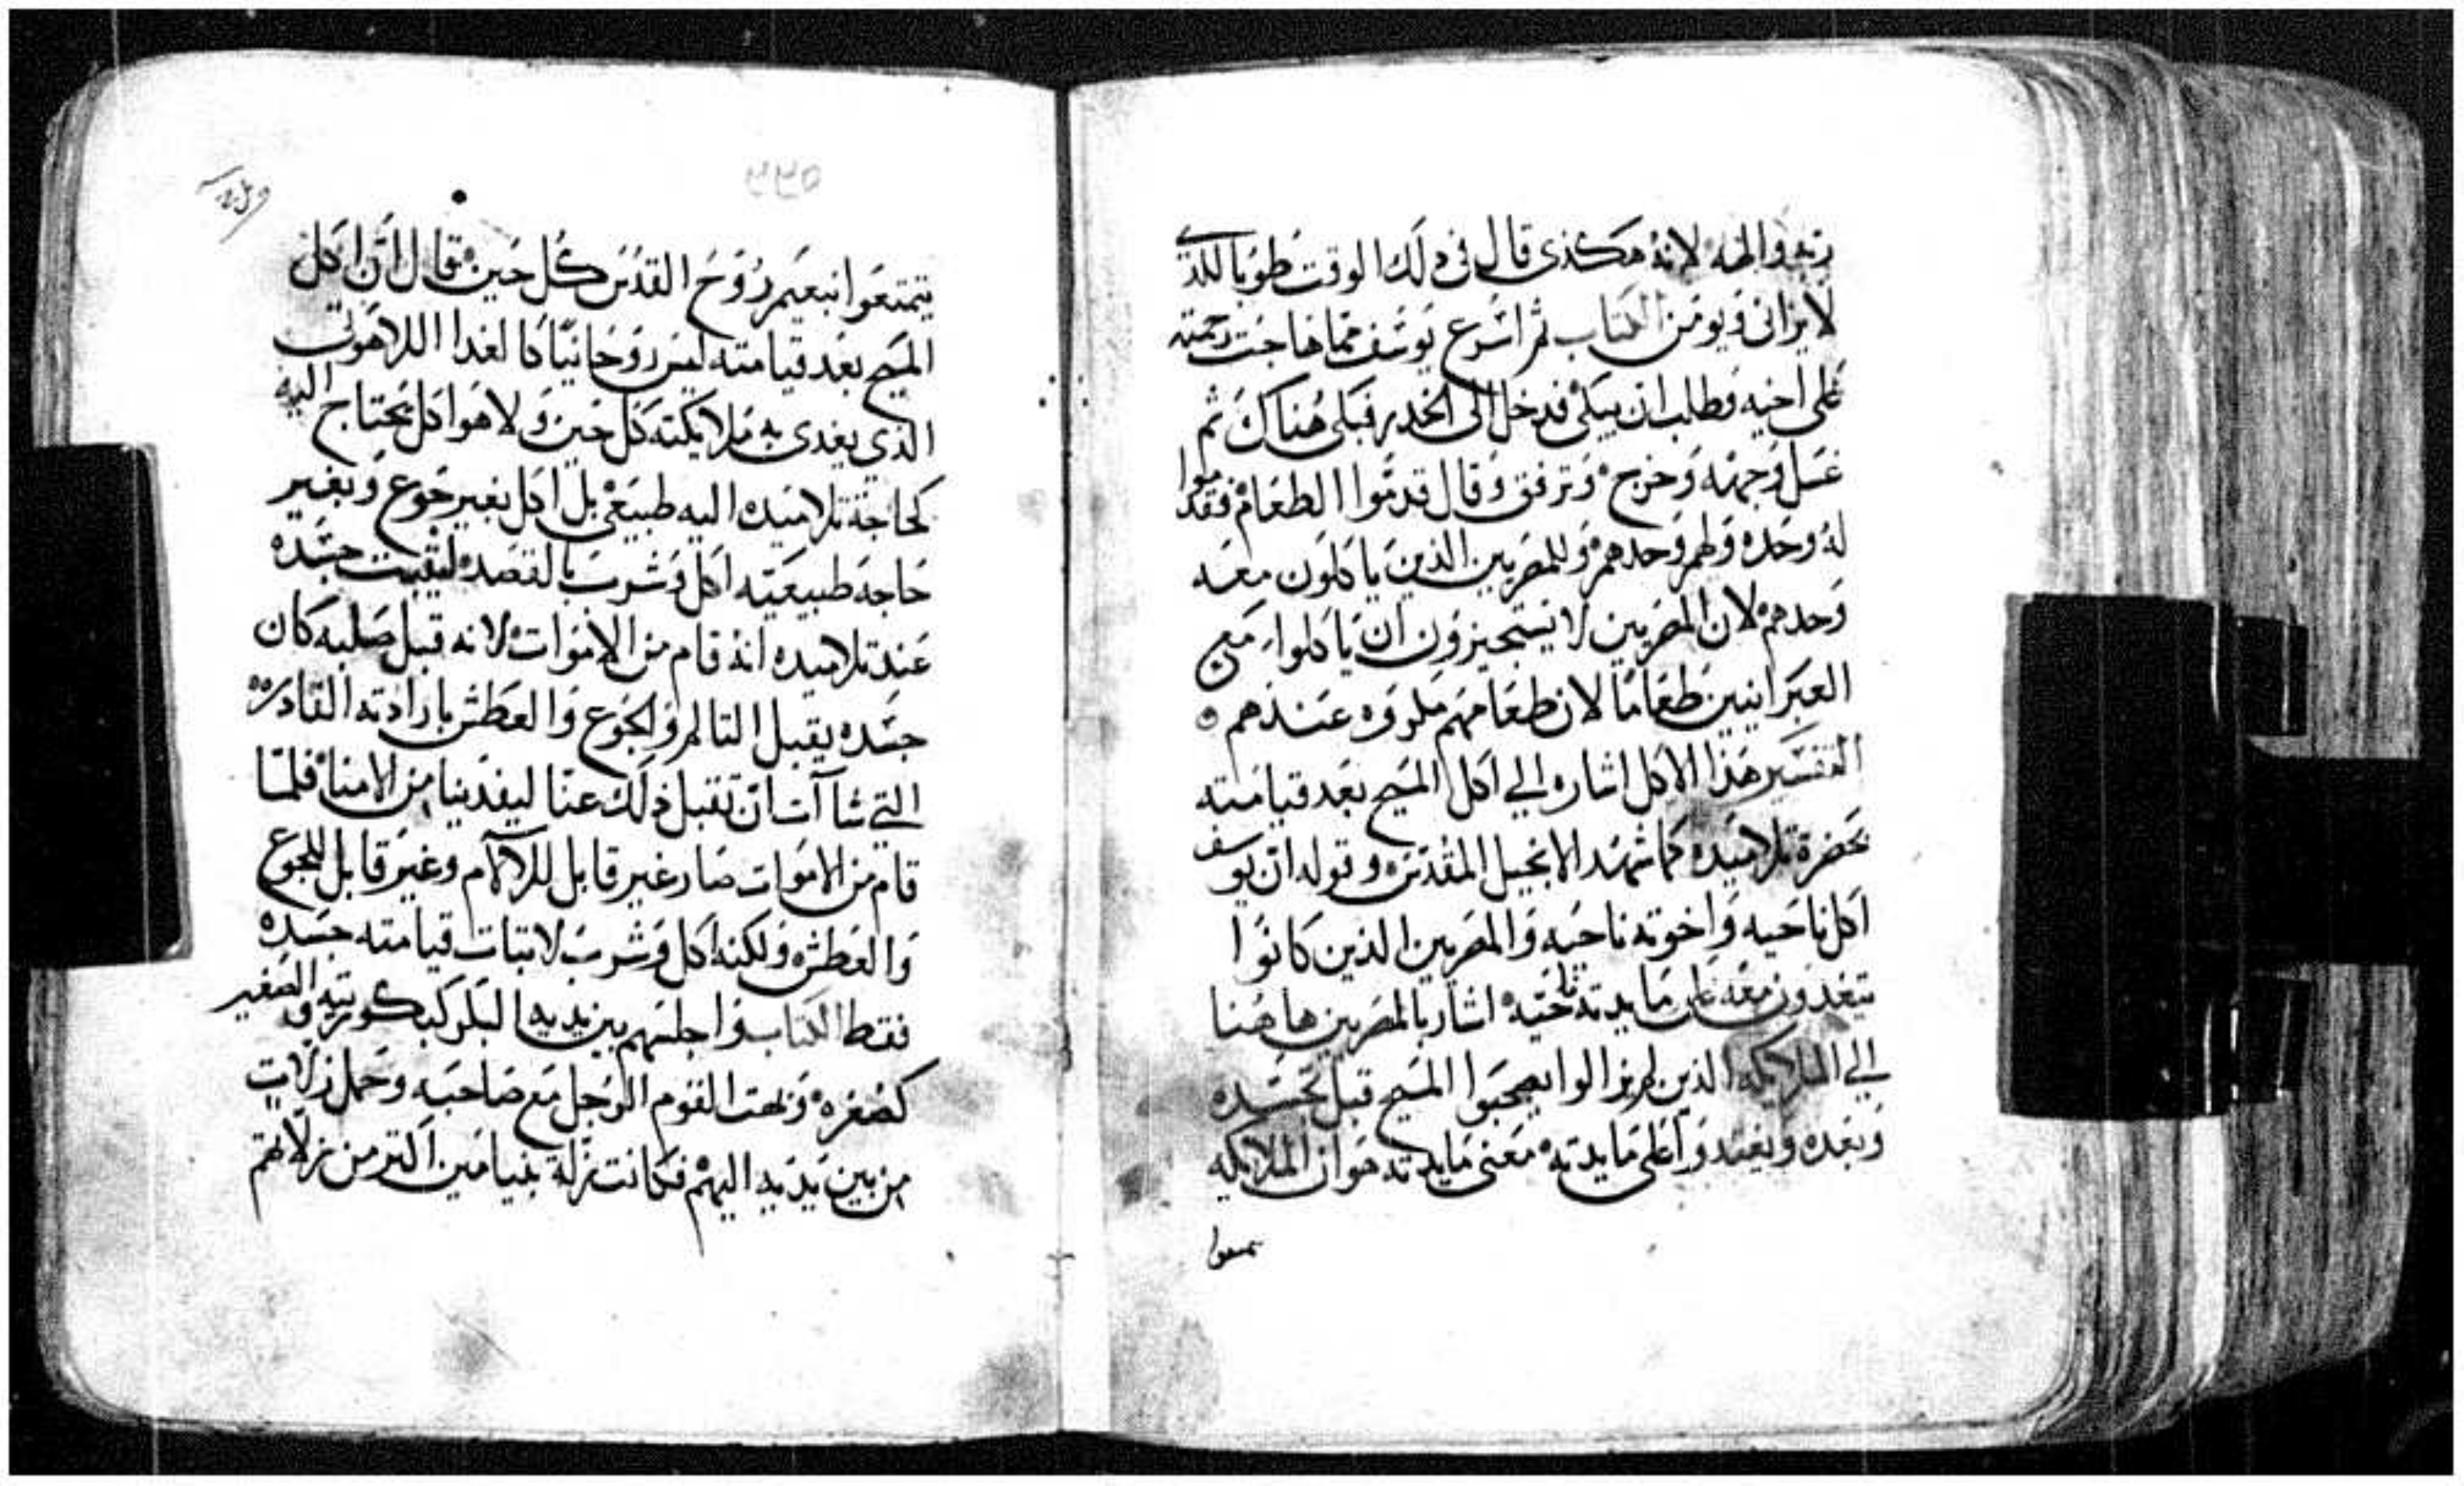 ربه والهه لانه هكذى قال فى دلك الوقت طوبا للذى
لا يرانى ويومن الكتاب ثم اسرع يوسف مما هاجت رحمته
على اخيه وطلب ان يبكى فدخل الى الخدر فبكى هناك ثم
غسل وجهه وخرج وترفق وقال قدموا الطعام فقدموا
له وحده ولهم وحدهم وللمصريين الذين ياكلون معه
وحدهم لان المصريين لا يستجيزون ان ياكلوا مع
العبرانيين طعاما لان طعامهم مكروه عندهم
التفسير هذا الاكل اشاره الي اكل المسيح بعد قيامته
بحضرة تلاميده كما شهد الانجيل المقدس وقوله ان يوسف
اكل ناحيه واخوته ناحيه والمصريين الذين كانوا
يتغدون معه على مايدته ناحيه اشار بالمصريين هاهنا
الي الملايكه الذين لم يزالوا يصحبوا المسيح قبل تجسده
وبعده ويغتدوا على مايدته معنى مايدته هو ان الملايكه
يتمتعوا
٢٢٥
يتمتعوا بنعيم روح القدس كل حين قال ان اكل
المسيح بعد قيامته ليس روحانيا كالغدا اللاهوتى
الذي يغدى به ملايكته كل حين ولا هو اكل يحتاج اليه
كحاجة تلاميده اليه طبيعى بل اكل بغير جوع وبغير
حاجه طبيعيه اكل وشرب بالقصد ليثبت جسده
عند تلاميده انه قام من الاموات لانه قبل صلبه كان
جسده يقبل التالم والجوع والعطش بارادته القادره
التي شاآت ان تقبل ذلك عنا ليفدينا من الامنا فلما
قام من الاموات صار غير قابل للالام وغير قابل للجوع
والعطش ولكنه اكل وشرب لاتبات قيامته جسده
فقط الكتاب واجلسهم بين يديه البكر كبكوريته والصغير
كصغره وبهت القوم الرجل مع صاحبه وحمل نزلات
من بين يديه اليهم فكانت نزلة بنيامين اكتر من نزلاتهم